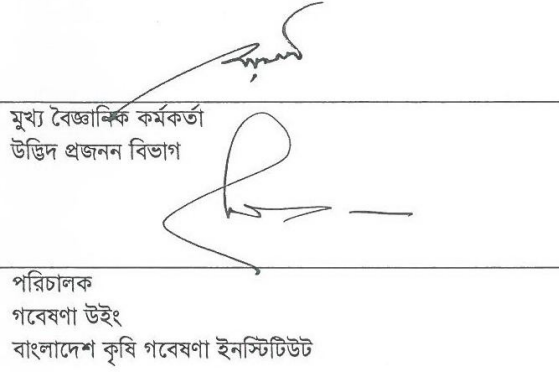 মুখ্য বৈজ্ঞানিক কর্মকর্তা
উদ্ভিদ প্রজনন বিভাগ
পরিচালক
গবেষণা উইং
বাংলাদেশ কৃষি গবেষণা ইনস্টিটিউট